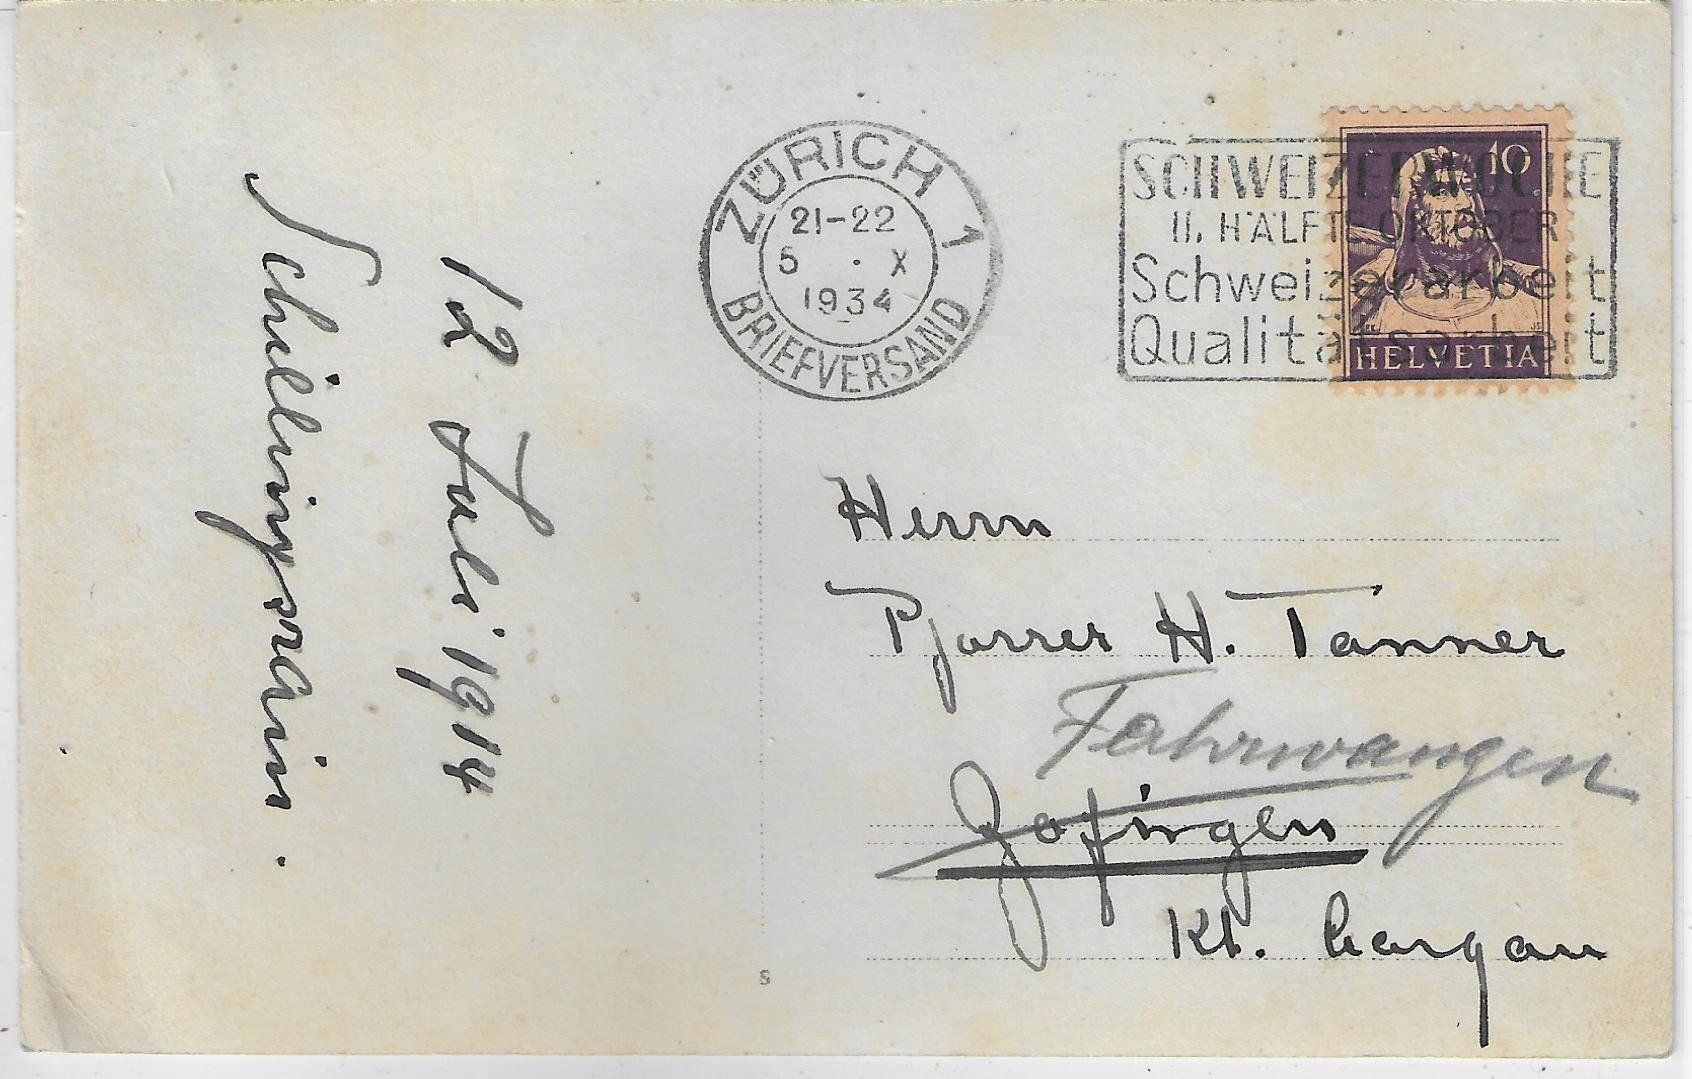 12 Juli 1914
Schillingsrain.
ZÜRICH 1
21-22
5 . X
1934
BRIEFVERSAND
SCHWEIZERWOCHE
II. HÄLFTE OKTOBER
Schweizerarbeit
Qualitätsarbeit
10
HELVETIA
Herrn
Pfarrer H. Tanner
Fahrwangen
Zofingen
Kt. Aargau
8